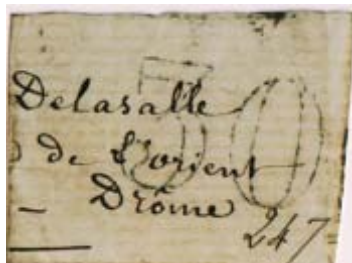 Delasalle
de Lorient
Drôme
30
247